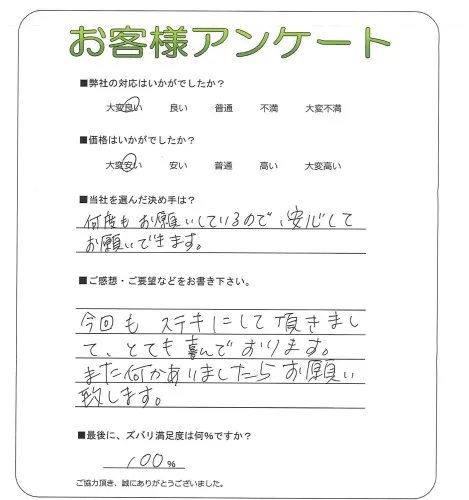 お客様アンケート
■弊社の対応はいかがでしたか？
大変良い 良い 普通 不満 大変不満
■価格はいかがでしたか？
大変安い 安い 普通 高い 大変高い
■当社を選んだ決め手は？
何度もお願いしているので、安心して
お願いできます。
■ご感想・ご要望などをお書き下さい。
今回も ステキにして頂きまし
て、とても喜んでおります。
また何かありましたらお願い
致します。
■最後に、ズバリ満足度は何％ですか？
100％
ご協力頂き、誠にありがとうございました。